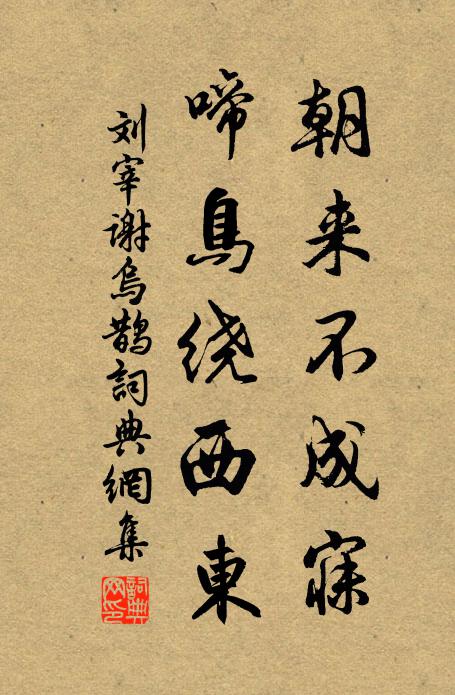 朝来不成寐
啼鳥绕西東
刘宰谢烏鵲詞典網集
詞典网印